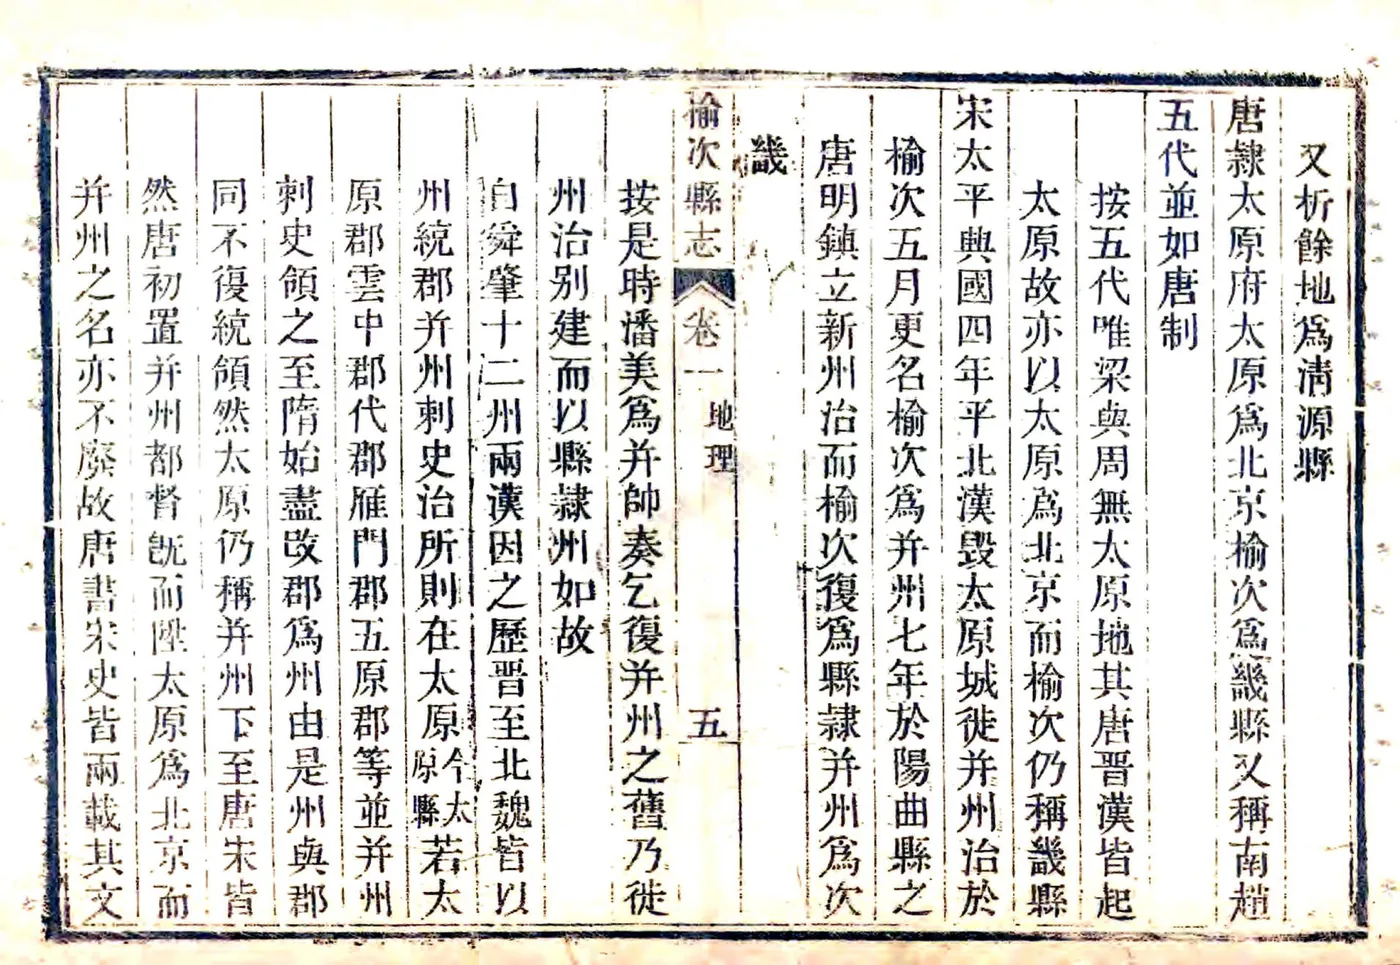 又析餘地爲淸源縣
唐隸太原府太原爲北京榆次爲畿縣又稱南趙
五代並如唐制
按五代唯梁與周無太原地其唐晋漢皆起
太原故亦以太原爲北京而榆次仍稱畿縣
宋太平興國四年平北漢毁太原城徙并州治於
榆次五月更名榆次爲并州七年於陽曲縣之
唐明鎮立新州治而榆次復爲縣隸并州爲次
畿
榆次縣志 卷一 地理 五
按是時潘美爲并帥奏乞復并州之舊乃徙
州治别建而以縣隸州如故
自舜肇十二州兩漢因之歷晋至北魏皆以
州統郡并州刺史治所則在太原今太原縣若太
原郡雲中郡代郡雁門郡五原郡等並并州
刺史領之至隋始盡改郡爲州由是州與郡
同不復統領然太原仍稱并州下至唐宋皆
然唐初置并州都督旣而陞太原爲北京而
并州之名亦不廢故唐書宋史皆兩載其文